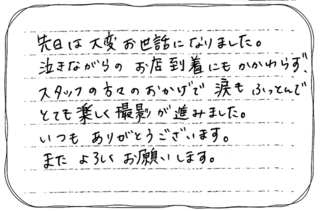 先日は大変お世話になりました。
泣きながらの お店到着にもかかわらず、
スタッフの方々のおかげで 涙もふっとんで
とても楽しく撮影が進みました。
いつも ありがとうございます。
また よろしくお願いします。